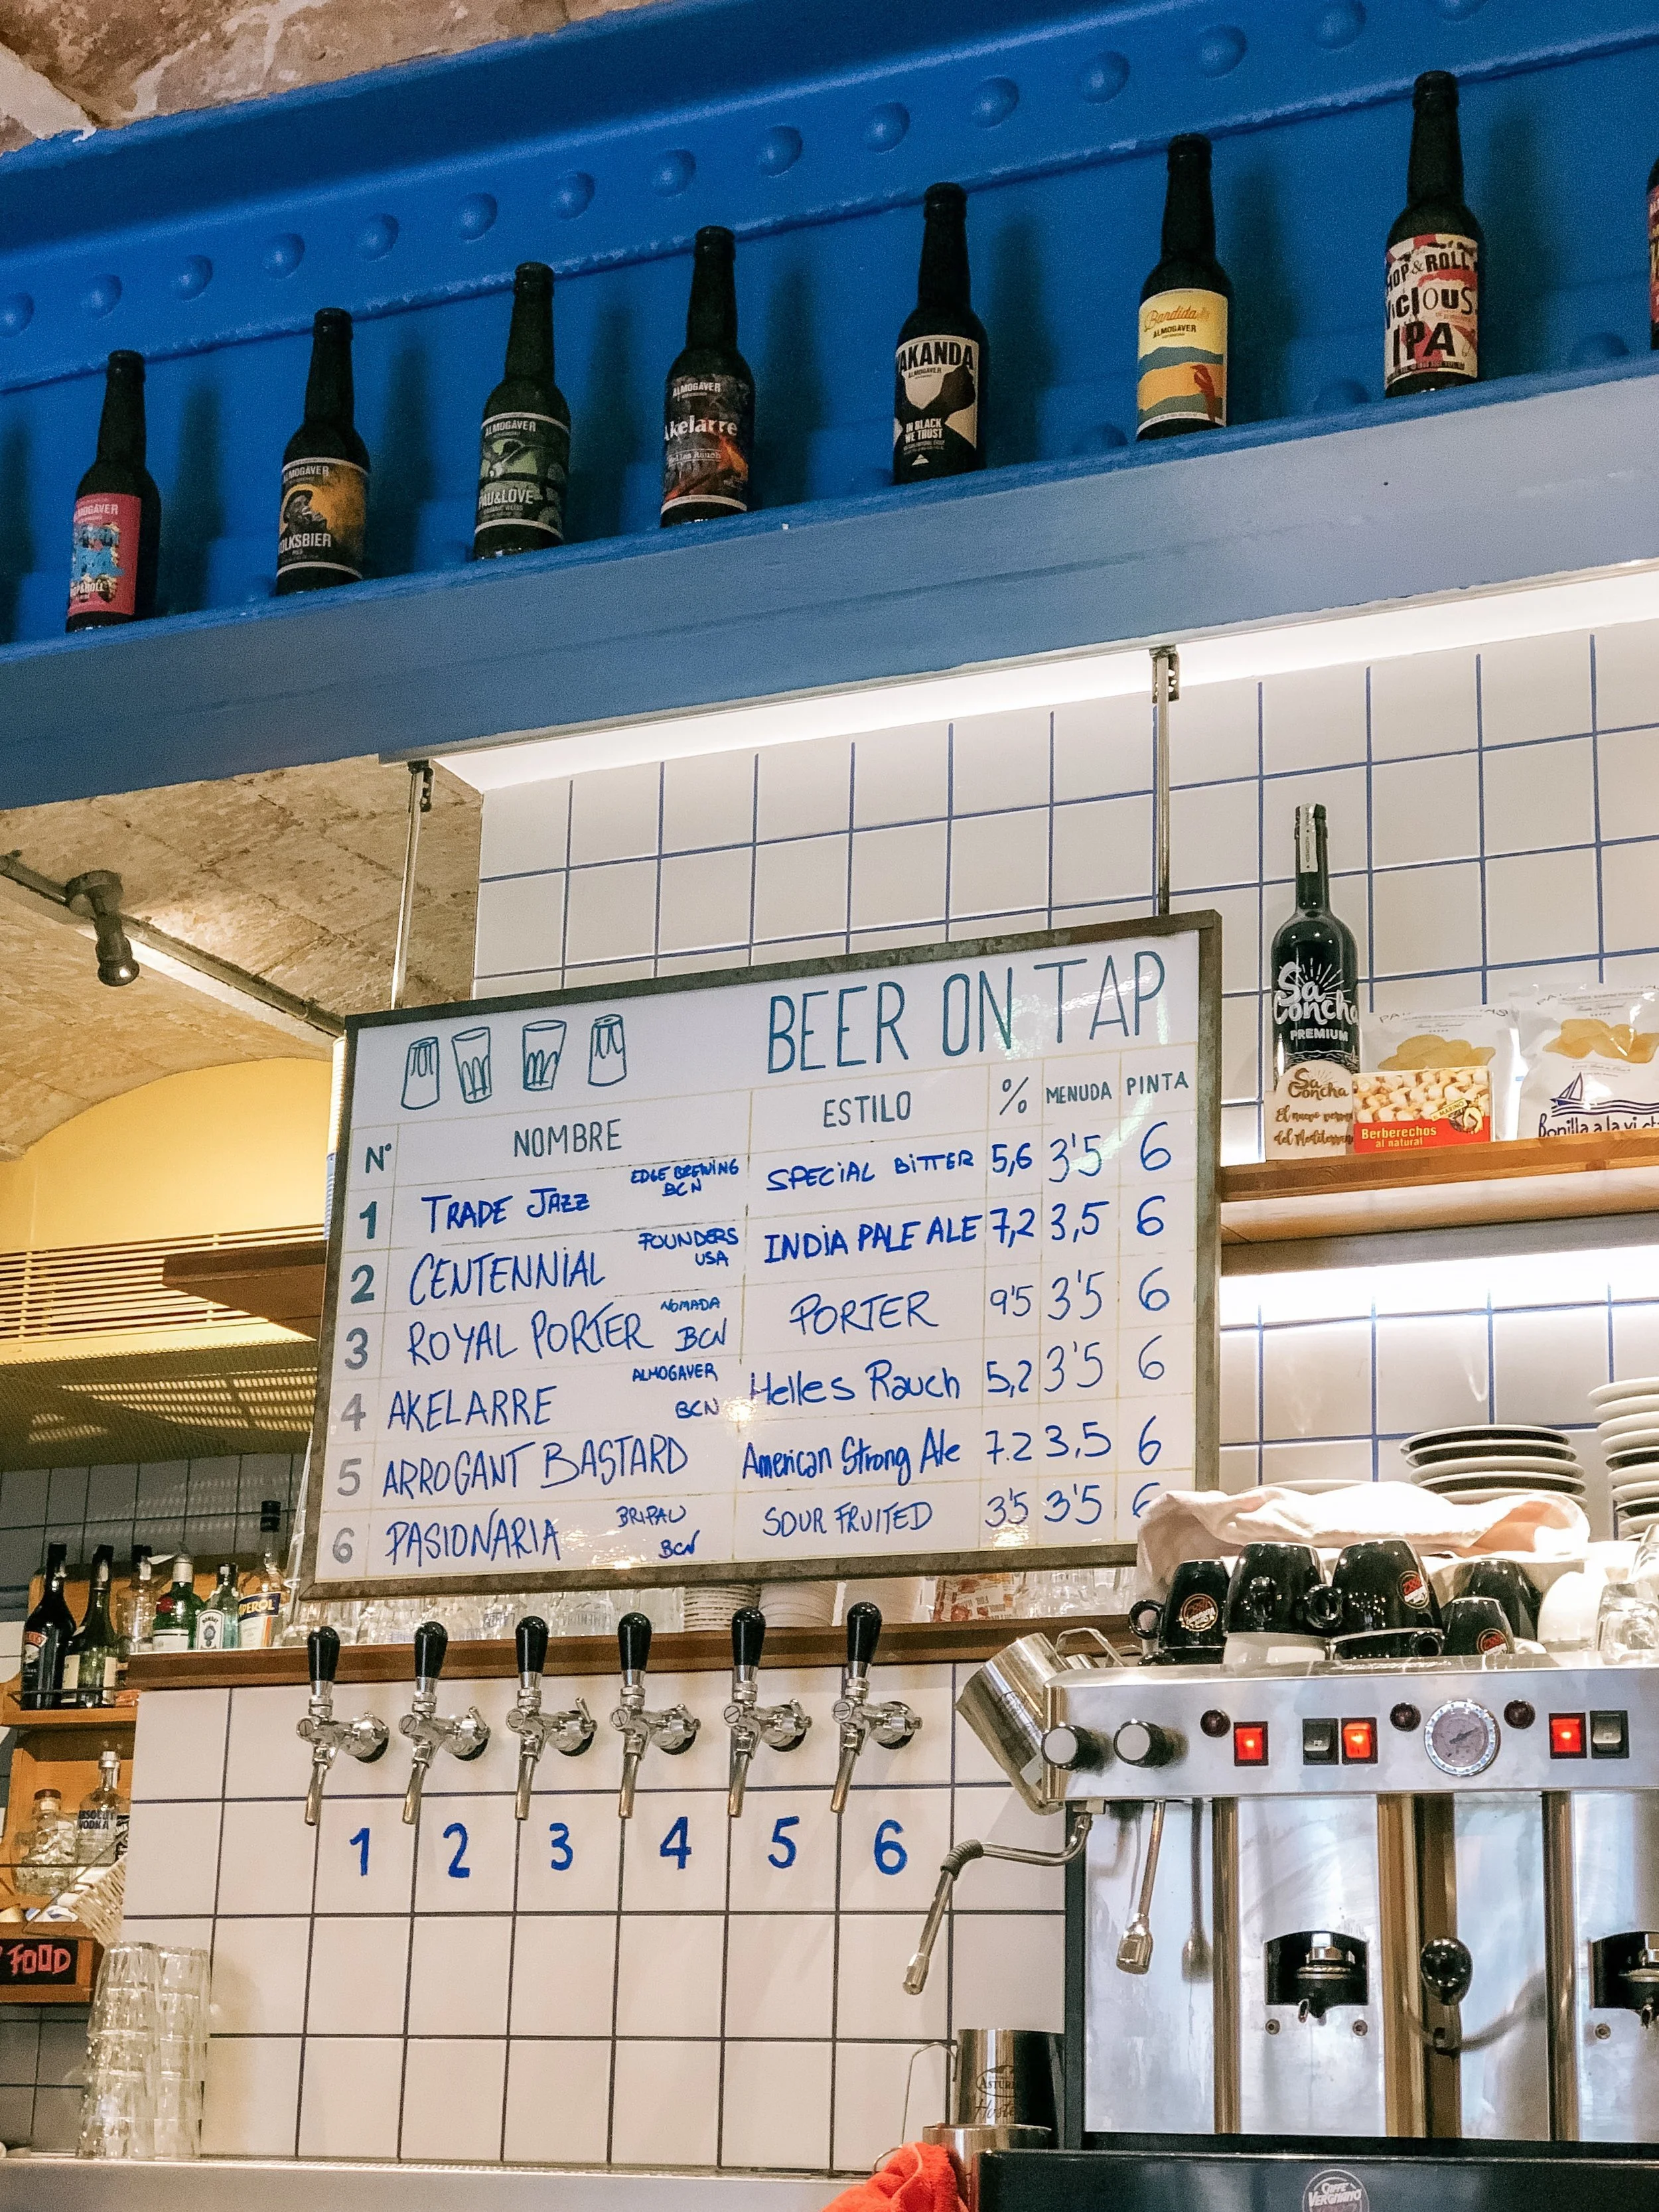 HOP & ROLL
VICIOUS
IPA
Bandida
ALMOGAVER
AKANDA
ALMOGAVER
IN BLACK
WE TRUST
ALMOGAVER
Akelarre
Helles Rauch
ALMOGAVER
PAU&LOVE
ALMOGAVER
OLKSBIER
ALMOGAVER
Sa
Concha
PREMIUM
Sa
Concha
Berberechos
al natural
Bonilla a la vi
BEER ON TAP
Nº NOMBRE ESTILO % MENUDA PINTA
1 TRADE JAZZ EDGE BREWING BCN SPECIAL BITTER 5,6 3'5 6
2 CENTENNIAL FOUNDERS USA INDIA PALE ALE 7,2 3,5 6
3 ROYAL PORTER NOMADA BCN PORTER 9'5 3'5 6
4 AKELARRE ALMOGAVER BCN Helles Rauch 5,2 3'5 6
5 ARROGANT BASTARD American Strong Ale 7.2 3,5 6
6 PASIONARIA BRIPAU BCN SOUR FRUITED 3'5 3'5 6
1 2 3 4 5 6
ABSOLUT
VODKA
FOOD
CAFFÈ
VERGNANO